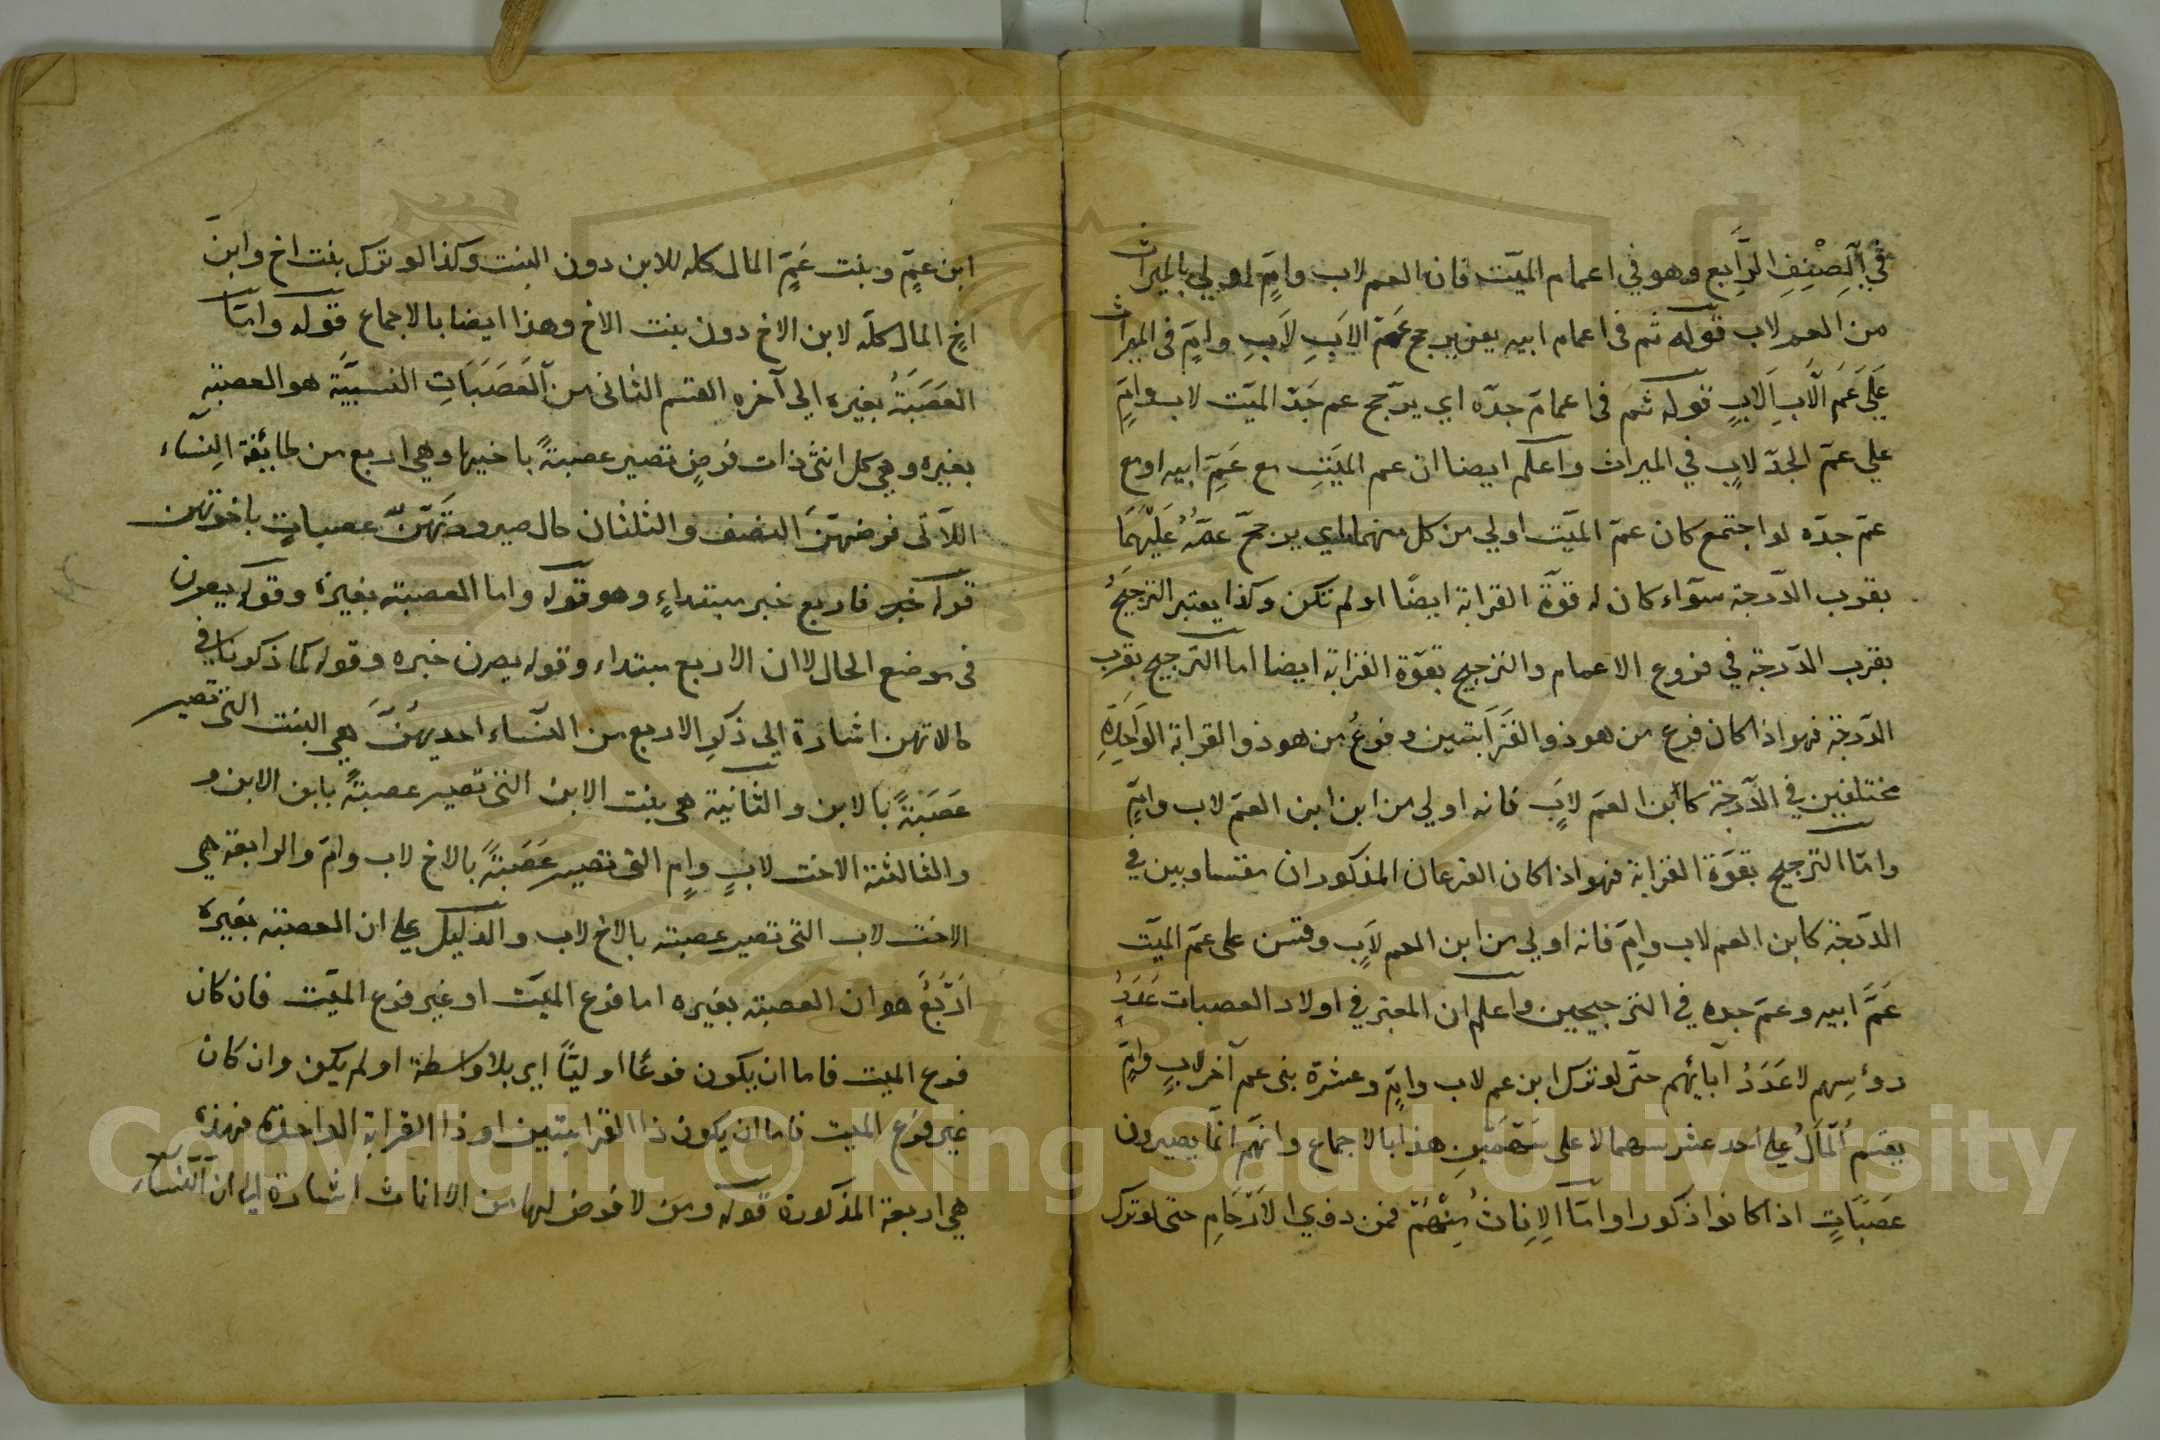 في الصِّنِفِ الرَّابع وهو في اعمام الميّت فان العم لاب وامٍّ اولي بالميراث
من العم لاب قوله ثم فى اعمام ابيه يعنى يرجح عَمّ الاَبِ لاَبِ وامٍّ فى الميراث
عَلَى عَمِّ الاَبِ لاَبٍ قوله ثم فى اعمام جدّه اي يرجّح عم جَدّ الميّت لاب وامٍّ
علي عمّ الجدّ لابٍ في الميراث واعلم ايضا ان عم الميّتِ مع عَمِّ ابيه او مع
عمّ جدّه لو اجتمع كان عمّ الميّت اولي من كل منهما اي يرجحّ عمّهُ عَلَيْهُمَا
بقرب الدّرجة سوآء كان له قوّة القرابة ايضًا او لم تكن وكذا يعتبر الترجيحُ
بقرب الدّرجة في فروع الاعمام والترجيح بقوّة القرابة ايضا اما الترجيح بقربِ
الدّرجة فهو اذا كان فرع من هو ذو القَرَابتين وفرعُ من هو ذو القرابة الوَاحِدَةِ
مختلفين في الدّرجة كابن العمّ لابٍ فانه اولي من ابن ابن العمّ لاب وامٍّ
وامّا الترجيح بقوّة القرابة فهو اذا كان الفرعان المذكوران متساويين في
الدّرجة كابن العم لاب وامٍّ فانه اولي من ابن العم لاَبٍ وقس على عمّ الميّت
عَمَّ ابيه وعمّ جده في الترجيحين واعلم ان المعتبر في اولاد العصبات عَدَدُ
رءُسِهِم لا عَدَدُ آبائهم حتّى لو ترك ابن عم لاب وامٍّ وعشرة بنى عم آخر لابٍ وامٍّ
يقسمُ المَالُ علي احد عشر سهما لا على سَهْمَيْنِ هذا بالاجماع وانهم انّما يصيرون
عَصَبَاتٍ اذا كانوا ذكورا وامّا الاِنِاثُ مِنْهُمْ فمن ذوي الاَرْحَامِ حتى لو ترك
ابن عمٍّ وبنت عَمٍّ المال كله للابن دون البنت وكذا لو ترك بنت اخ وابن
اخٍ المال كلّه لابن الاخ دون بنت الاخ وهذا ايضا بالاجماع قوله وامّا
العَصَبَةُ بغيره الي آخره القسم الثانى من العَصَبَاتِ النسبيَّة هو العصبة
بغيره وهي كل انثى ذات فرضٍ تصير عصبةً باخيها وهي اربع من طائفة النِسَآء
اللآتى فرضهنّ النصف والثلثان حال صيرورتهنّ عصباتٍ باخوتهن
قوله فاربع خبر مبتداءٍ وهو قوله واما العصبة بغيره وقوله يصرن
فى موضع الحال لا ان الاربع مبتداء وقوله يصرن خبره وقوله كما ذكرنا في
حالاتهن اشارة الي ذكرِ الاربع من النسآء احديهُنَّ هي البنت التى تصير
عَصَبَةً بالابن والثانية هي بنت الابن التى تصير عصبةً بابن الابن و
والثالثة الاخت لابٍ وامٍ التى تصير عَصَبَةً بالاخ لاب وامّ والرابعة هي
الاخت لاب التى تصير عصبة بالاخ لاب والدّليل علي ان العصبة بغيره
اَرْبَعُ هو ان العصبة بغيره اما فرع الميّت او غير فرع الميّت فان كان
فرع الميت فاما ان يكون فرعًا اوليًّا اي بلا واسطة او لم يكن وان كان
غير فرع الميت فاما ان يكون ذا القرابتين او ذا القرابة الواحدة فهذه
هي اربعة المذكورة قوله ومن لا فرض لها من الاناث اشارة الي ان النسآء
Copyright © King Saud University